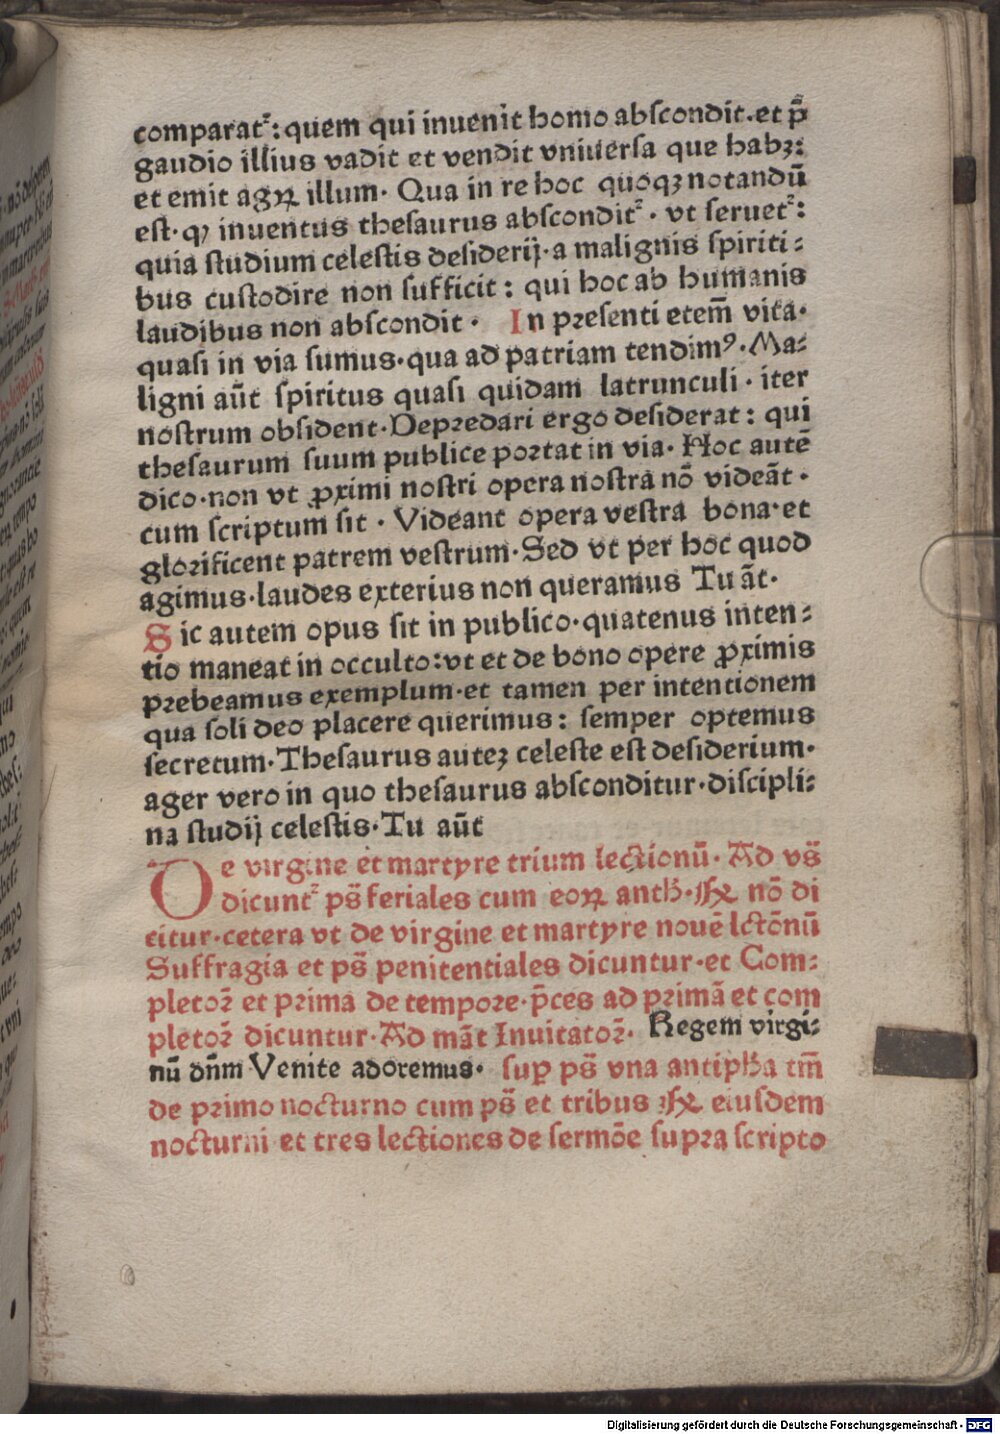 comparat᷑: quem qui inuenit homo abſcondit. et p̄
gaudio illius vadit et vendit vniuerſa que habꝫ:
et emit agꝝ illum· Qua in re hoc quoqꝫ notandū
eſt· ꝙ inuentus theſaurus abſcondit᷑ · vt ſeruet᷑:
quia ſtudium celeſtis deſiderij· a malignis ſpiriti⸗
bus cuſtodire non ſufficit: qui hoc ab humanis
laudibus non abſcondit · In pꝛeſenti etem̄ vita·
quaſi in via ſumus· qua ad patriam tendimꝰ· Ma⸗
ligni aūt ſpiritus quaſi quidam latrunculi · iter
noſtrum obſident· Depꝛedari ergo deſiderat: qui
theſaurum ſuum publice poꝛtat in via· Hoc autē
dico· non vt ꝓximi noſtri opera noſtra nō videāt ·
cum ſcriptum ſit · Videant opera veſtra bona· et
gloꝛificent patrem veſtrum· Sed vt per hoc quod
agimus· laudes exterius non queramus Tu āt·
Sic autem opus ſit in publico· quatenus inten⸗
tio maneat in occulto: vt et de bono opere ꝓximis
pꝛebeamus exemplum· et tamen per intentionem
qua ſoli deo placere querimus: ſemper optemus
ſecretum· Theſaurus auteꝫ celeſte eſt deſiderium·
ager vero in quo theſaurus abſconditur· diſcipli⸗
na ſtudij celeſtis· Tu aūt
De virgine et martyre trium lectionū· Ad vs̄
dicunt᷑ ps̄ feriales cum eoꝝ anth̄· nō di
citur· cetera vt de virgine et martyre nouē lctōnū
Suffragia et ps̄ penitentiales dicuntur· et Com⸗
pletoꝝ et pꝛima de tempoꝛe· p̄ces ad pꝛimā et com
pletoꝝ dicuntur· Ad māt Inuitatoꝝ· Regem virgi⸗
nū dn̄m Venite adoremus· ſuꝑ ps̄ vna antiph̄a tm̄
de pꝛimo nocturno cum ps̄ et tribus eiuſdem
nocturni et tres lectiones de ſermōe ſupꝛa ſcripto
Digitalisierung gefördert durch die Deutsche Forschungsgemeinschaft - DFG